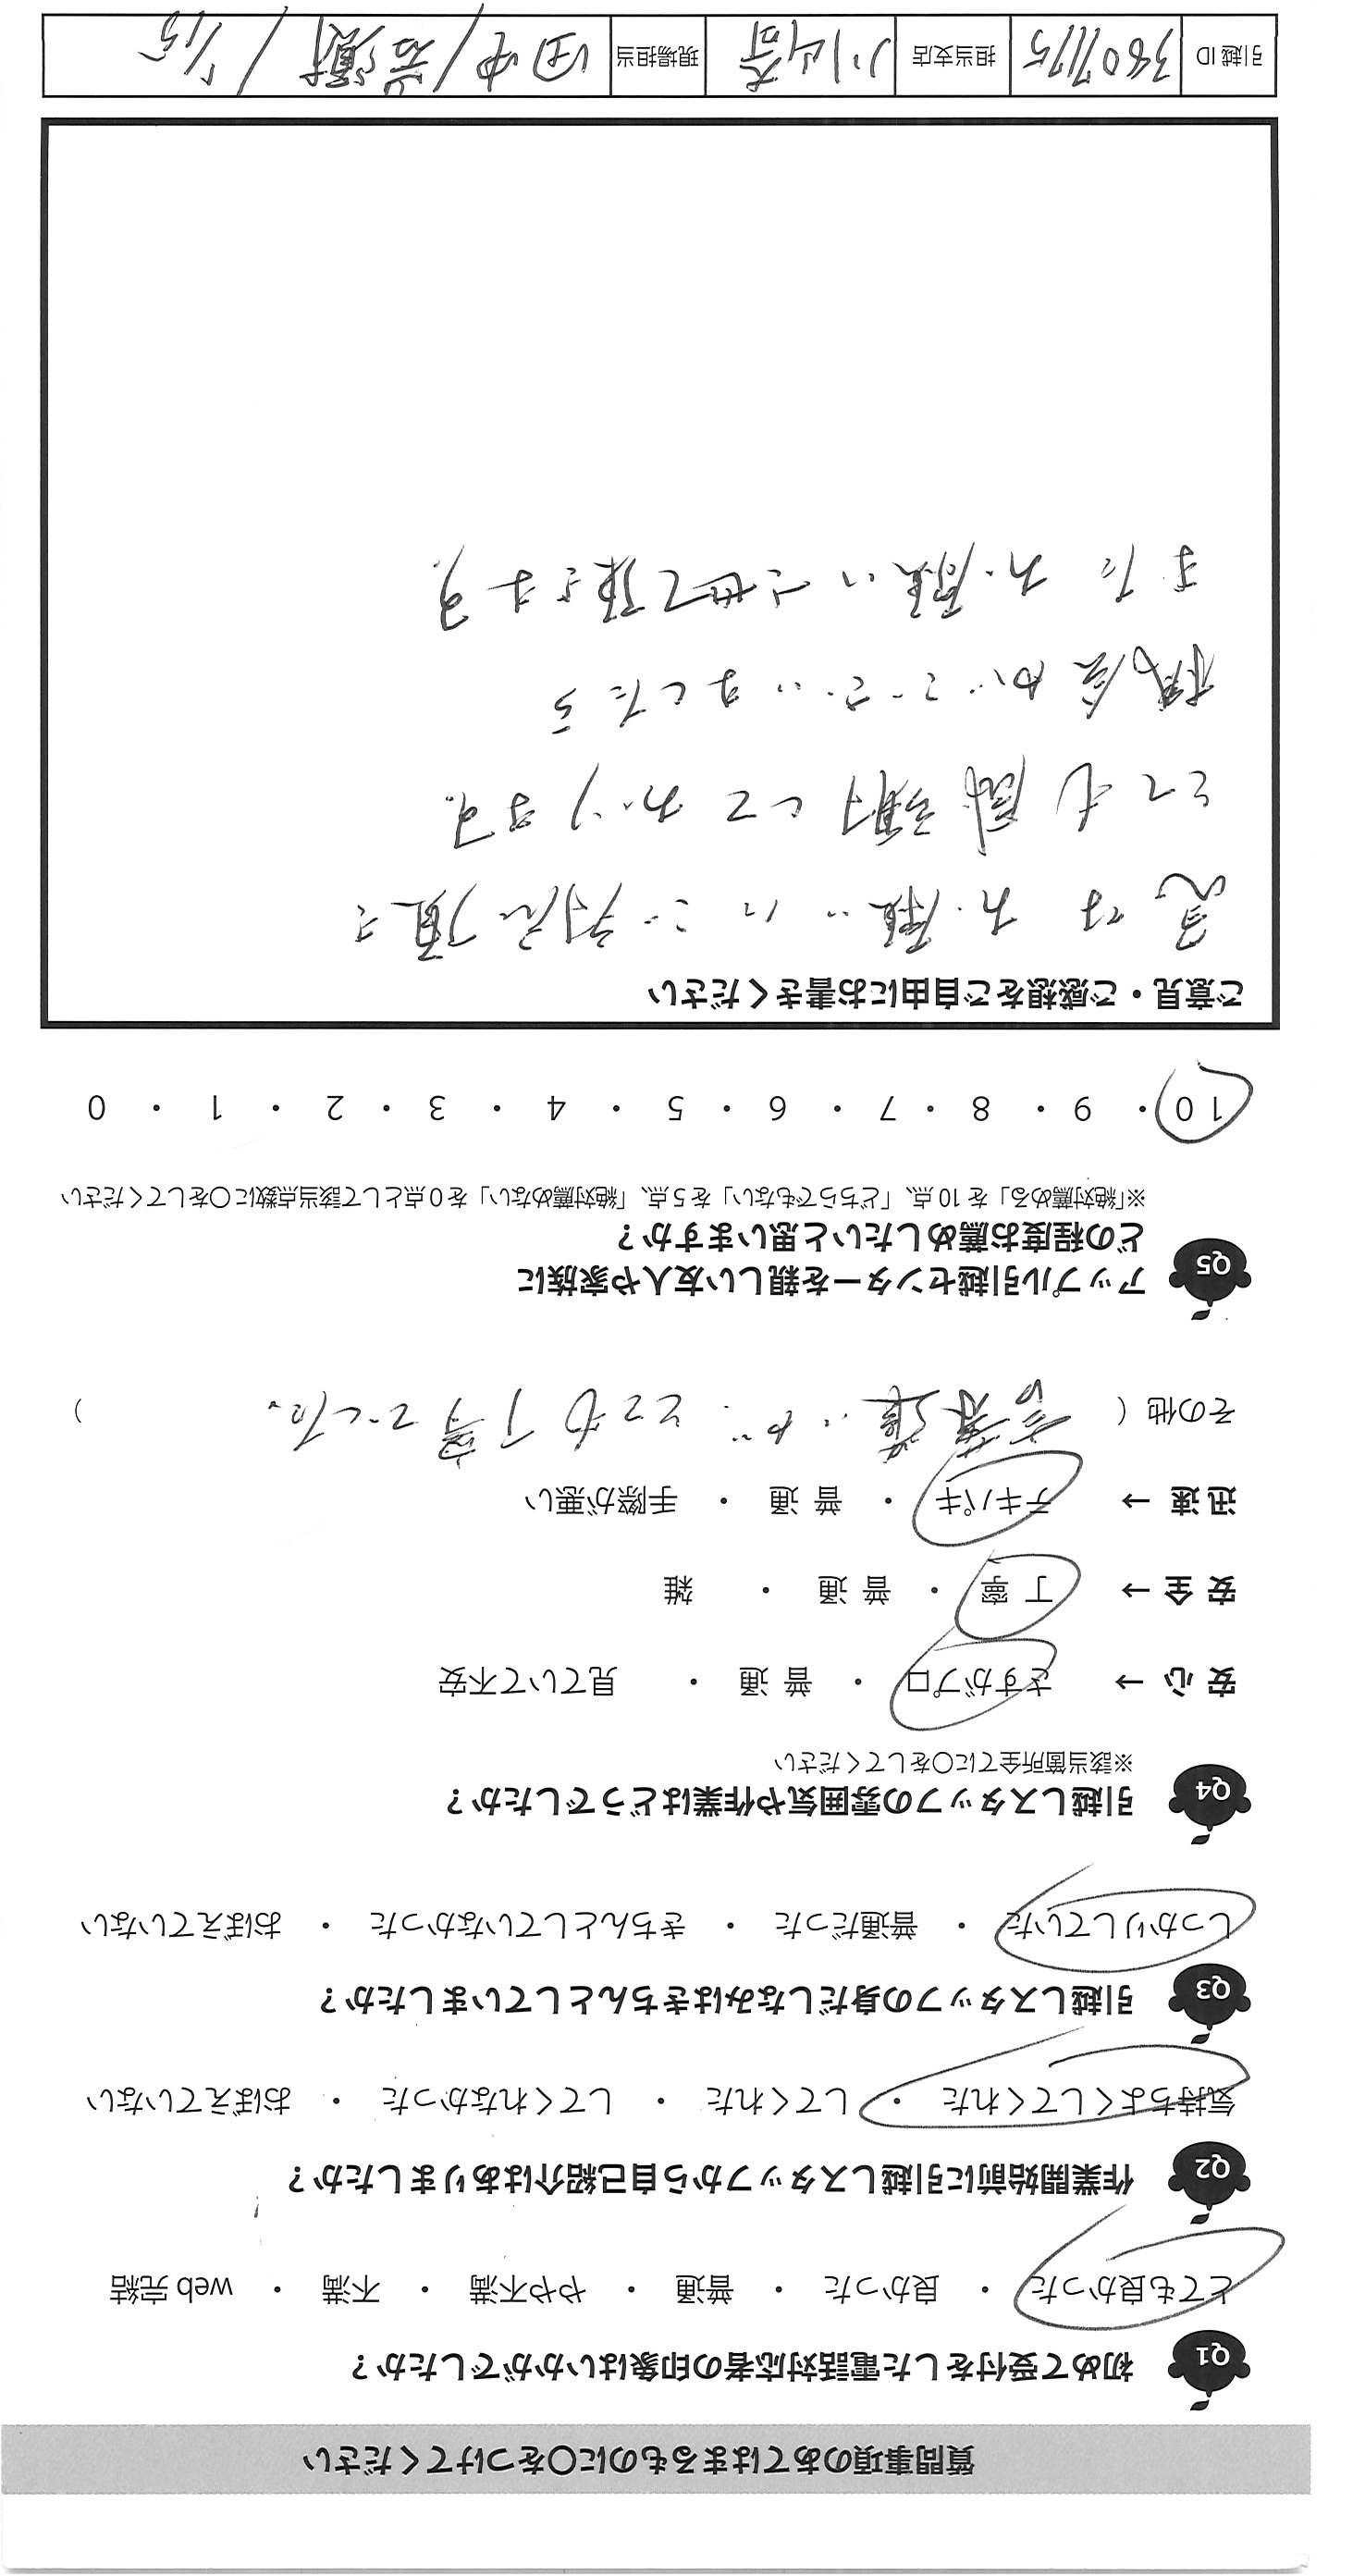 質問事項のあてはまるものに〇をつけてください
Q1 初めて受付をした電話対応者の印象はいかがでしたか？
とても良かった ・ 良かった ・ 普通 ・ やや不満 ・ 不満 ・ web 完結
Q2 作業開始前に引越しスタッフから自己紹介はありましたか？
気持ちよくしてくれた ・ してくれた ・ してくれなかった ・ おぼえていない
Q3 引越しスタッフの身だしなみはきちんとしていましたか？
しっかりしていた ・ 普通だった ・ きちんとしていなかった ・ おぼえていない
Q4 引越しスタッフの雰囲気や作業はどうでしたか？
※該当箇所全てに〇をしてください
安 心 → さすがプロ ・ 普 通 ・ 見ていて不安
安 全 → 丁 寧 ・ 普 通 ・ 雑
迅 速 → テキパキ ・ 普 通 ・ 手際が悪い
その他（ 言葉遣いが とても丁寧でした。 ）
Q5 アップル引越センターを親しい友人や家族に
どの程度お薦めしたいと思いますか？
※「絶対薦める」を 10 点、「どちらでもない」を 5 点、「絶対薦めない」を 0 点として該当点数に〇をしてください
10 ・ 9 ・ 8 ・ 7 ・ 6 ・ 5 ・ 4 ・ 3 ・ 2 ・ 1 ・ 0
ご意見・ご感想をご自由にお書きください
急なお願いにご対応頂き
とても感謝しております。
機会がございましたら
またお願いさせて頂きます。
引越 ID 3807175 担当支店 川崎 現場担当 田中/岩瀬 / 7/15